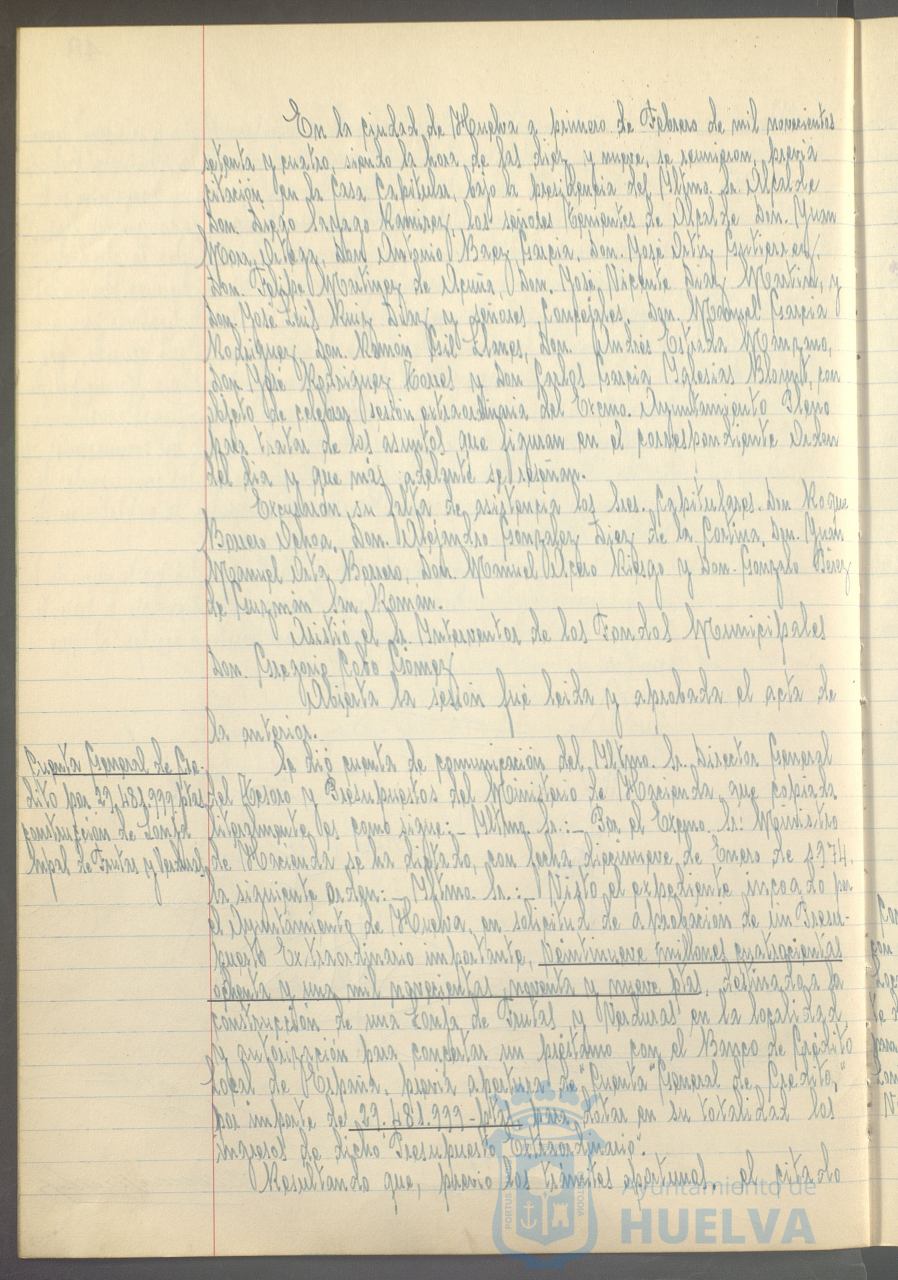 En la ciudad de Huelva a primero de Febrero de mil novecientos
setenta y cuatro, siendo la hora de las diez y nueve, se reunieron, previa
citación en la Casa Capitular, bajo la presidencia del Iltmo. Sr. Alcalde
Don Diego Sayago Ramirez, los señores Tenientes de Alcalde Don. Juan
Mora Ortega, Don Antonio Baez Garcia, Don. José Ortiz Gutierrez,
Don. Felipe Martinez de Acuña, Don. José Vicente Diaz Martin, y
Don. José Luis Ruiz Diaz y señores Concejales, Don. Manuel Garcia
Rodriguez, Don. Ramón Gil Llanes, Don. Andrés Estrada Manzano,
Don José Rodriguez Torres y Don Carlos Garcia Yglesias Blount, con
objeto de celebrar sesión extraordinaria del Excmo. Ayuntamiento Pleno
para tratar de los asuntos que figuran en el correspondiente Orden
del dia y que más adelante se reseñan.
Excusaron su falta de asistencia los Sres. Capitulares Don Roque
Barrero Ochoa, Don. Alejandro Gonzalez Diez de la Cortina, Don. Juan
Manuel Orta Borrero, Don. Manuel Riesgo y Don. Gonzalo Pérez
de Guzmán San Román.
Asistió el Sr. Interventor de los Fondos Municipales
Don. Gregorio Cobo Gómez
Abierta la sesión fué leida y aprobada el acta de
la anterior.
Cuenta General de Cré-
dito por 29.481.999 ptas
construcción de Lonja
de Frutas y Verduras
Se dió cuenta de comunicación del Iltmo. Sr. Director General
del Tesoro y Presupuestos del Ministerio de Hacienda, que copiada
literalmente es como sigue:_ Iltmo. Sr.:_ Por el Excmo. Sr. Ministro
de Hacienda se ha dictado, con fecha diecinueve de Enero de 1974
la siguiente orden:_ Iltmo. Sr.: Visto el expediente incoado por
el Ayuntamiento de Huelva, en solicitud de aprobación de un Presu-
puesto Extraordinario importante, veintinueve millones cuatrocientas
ochenta y una mil novecientas noventa y nueve ptas, destinado a la
construcción de una Lonja de Frutas y Verduras en la localidad
y autorización para concertar un préstamo con el Banco de Crédito
Local de España, previa apertura de "Cuenta General de Credito,"
por importe de 29.481.999-ptas, para dotar en su totalidad los
ingresos de dicho Presupuesto Extraordinario".
Resultando que, previo los tramites oportunos, el citado
PORTUS
CUSTODIA
Ayuntamiento de
HUELVA